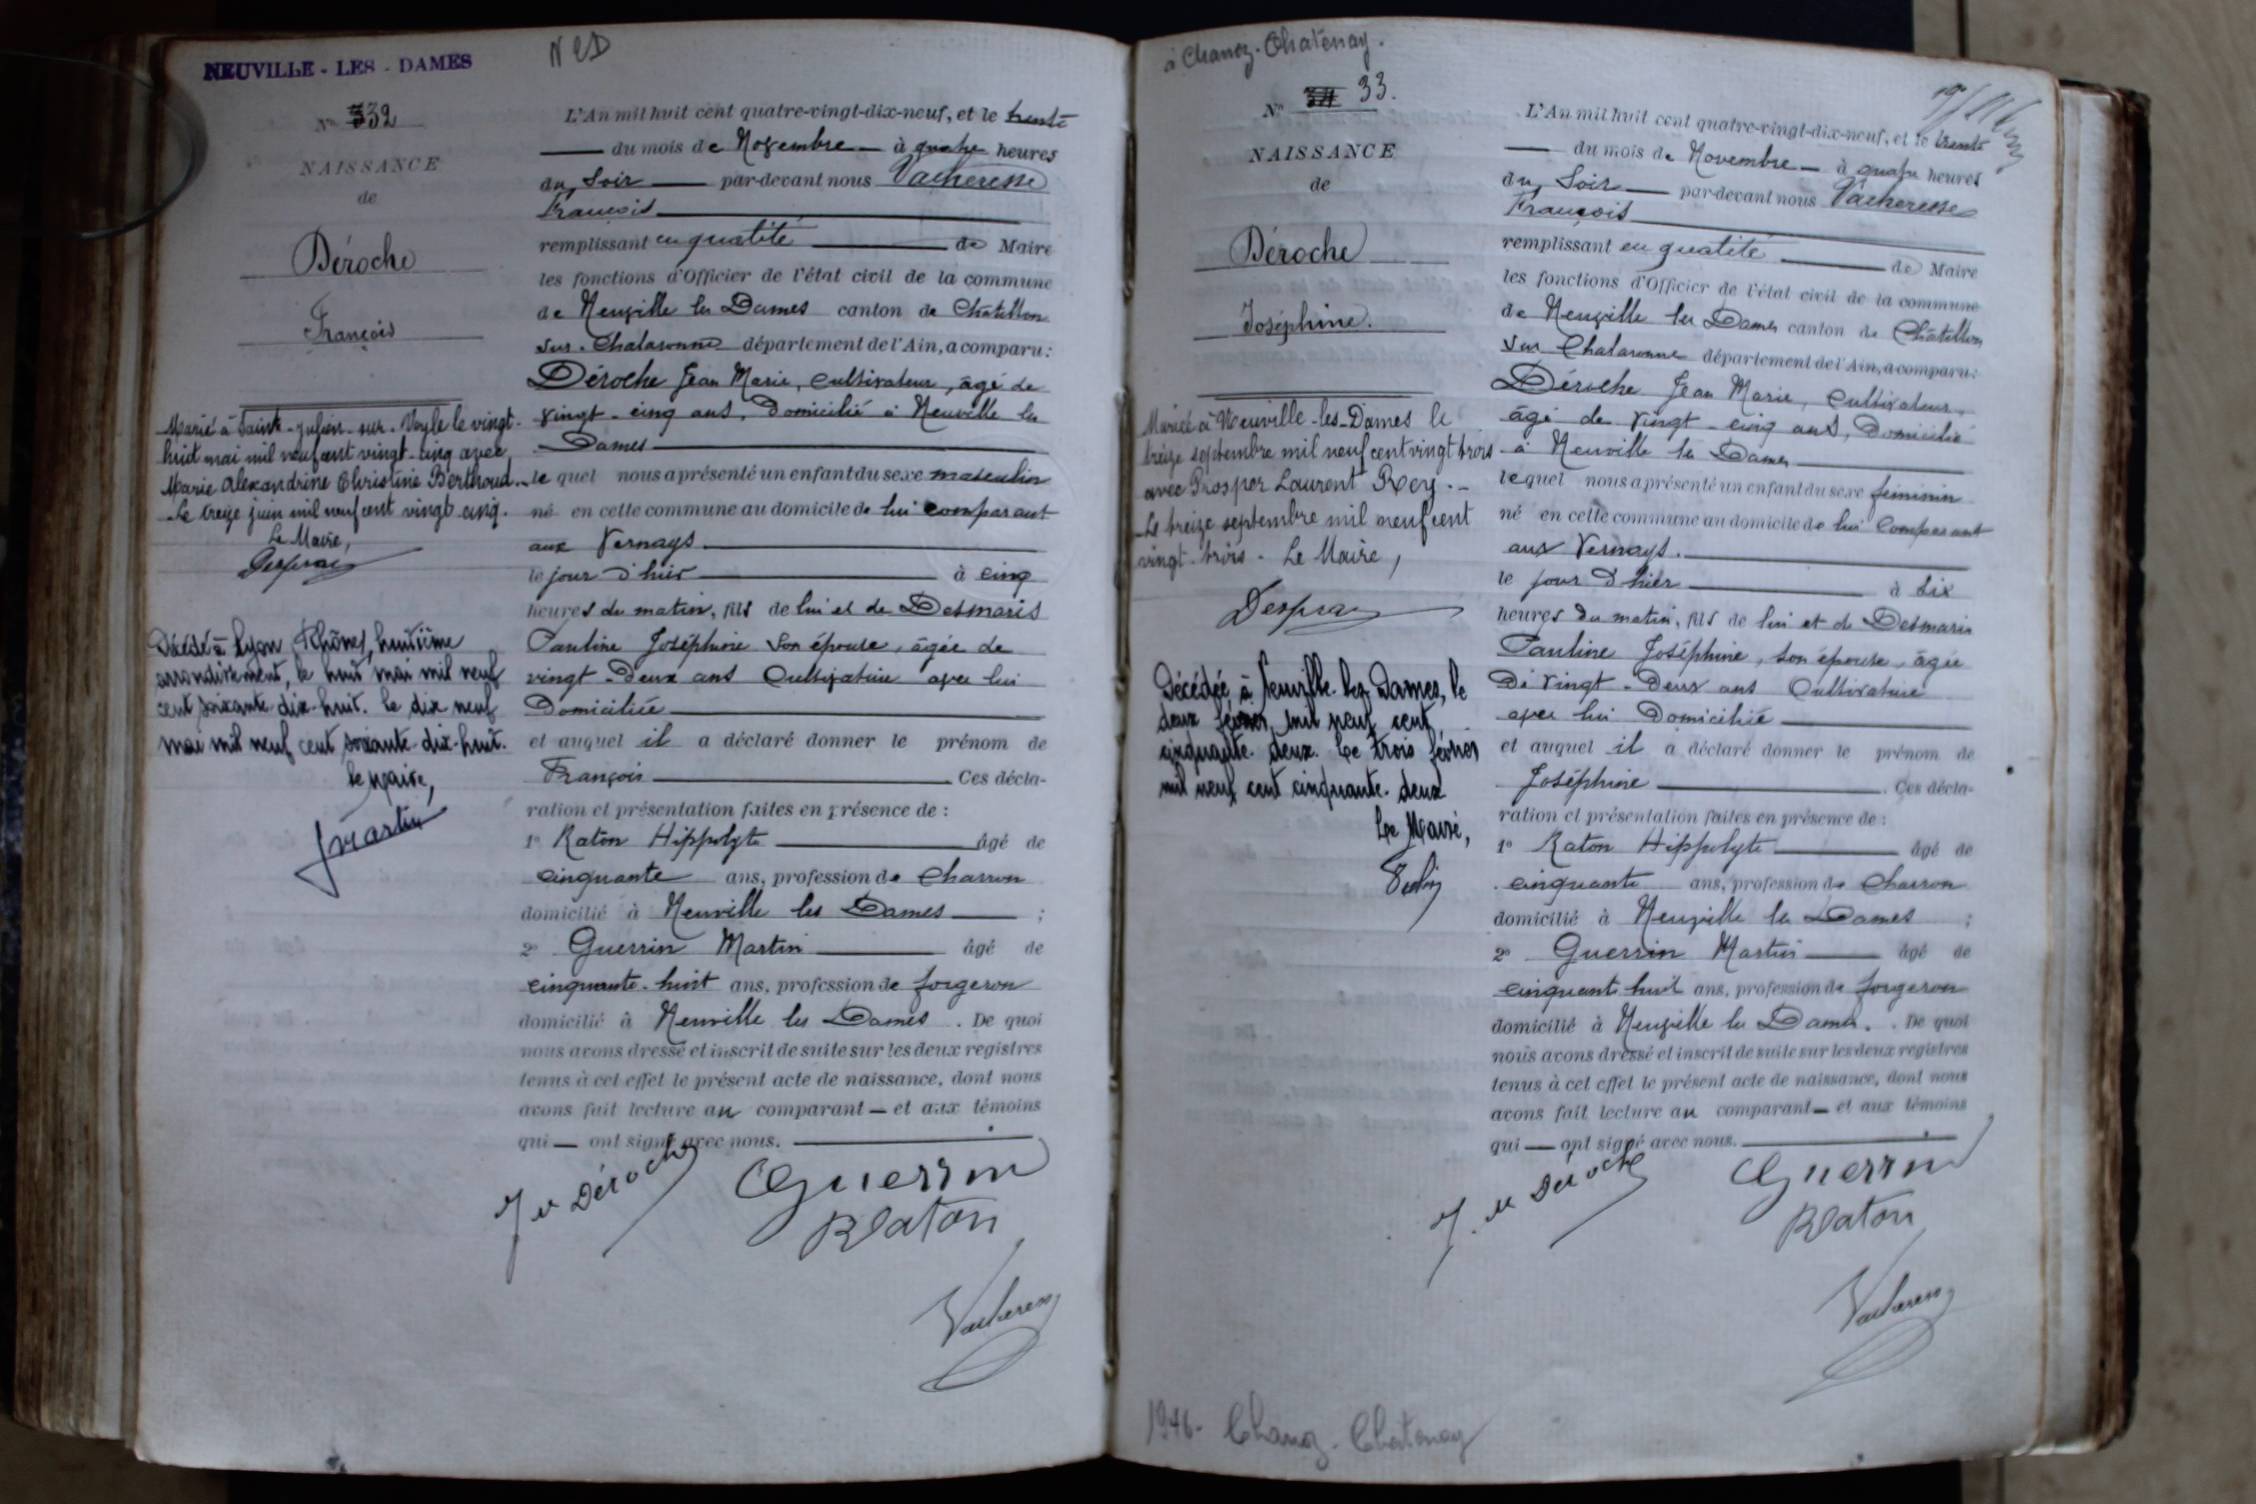 NEUVILLE - LES - DAMES
N L D
No 32
NAISSANCE
de
Déroche
François
Marié à Saint-Julien-sur-Veyle le vingt-
huit mai mil neuf cent vingt-cinq avec
Marie Alexandrine Christine Berthoud._
Le treize juin mil neuf cent vingt cinq.
Le Maire,
Décédé à Lyon (Rhône), huitième
arrondissement, le huit mai mil neuf
cent soixante-dix-huit. Le dix neuf
mai mil neuf cent soixante-dix-huit.
le Maire,
JMartin
L'An mil huit cent quatre-vingt-dix-neuf, et le trente
du mois de Novembre à quatre heures
du Soir par-devant nous Vacheresse
François
remplissant en qualité de Maire
les fonctions d'Officier de l'état civil de la commune
de Neuville les Dames canton de Châtillon
sur-Chalaronne département de l'Ain, a comparu :
Déroche Jean Marie, Cultivateur, âgé de
vingt-cinq ans, Domicilié à Neuville les
Dames
lequel nous a présenté un enfant du sexe masculin
né en cette commune au domicile de lui comparant
aux Vernays.
le jour d'hier à cinq
heures du matin, fils de lui et de Desmaris
Pauline Joséphine son épouse, âgée de
vingt-Deux ans Cultivatrice avec lui
Domiciliée
et auquel il a déclaré donner le prénom de
François Ces décla-
ration et présentation faites en présence de :
1o Raton Hippolyte âgé de
cinquante ans, profession de Charron
domicilié à Neuville les Dames ;
2o Guerrin Martin âgé de
cinquante-huit ans, profession de forgeron
domicilié à Neuville les Dames . De quoi
nous avons dressé et inscrit de suite sur les deux registres
tenus à cet effet le présent acte de naissance, dont nous
avons fait lecture au comparant — et aux témoins
qui — ont signé avec nous.
J M Déroche
Guerrin
Raton
Vacheresse
à Chanoz-Chatenay.
No 33.
NAISSANCE
de
Déroche
Joséphine.
Mariée à Neuville-les-Dames le
treize septembre mil neuf cent vingt trois
avec Prosper Laurent Rey._
Le treize septembre mil neuf cent
vingt-trois - Le Maire,
Décédée à Neuville-les-Dames, le
deux février mil neuf cent
cinquante-deux. Le trois février
mil neuf cent cinquante-deux
Le Maire,
L'An mil huit cent quatre-vingt-dix-neuf, et le trente
du mois de Novembre à quatre heures
du Soir par-devant nous Vacheresse
François
remplissant en qualité de Maire
les fonctions d'Officier de l'état civil de la commune
de Neuville les Dames canton de Châtillon
sur Chalaronne département de l'Ain, a comparu :
Déroche Jean Marie, Cultivateur,
âgé de vingt-cinq ans, Domicilié
à Neuville les Dames
lequel nous a présenté un enfant du sexe féminin
né en cette commune au domicile de lui comparant
aux Vernays.
le jour d'hier à six
heures du matin, fils de lui et de Desmaris
Pauline Joséphine, son épouse, âgée
De vingt-Deux ans Cultivatrice
avec lui Domiciliée
et auquel il a déclaré donner le prénom de
Joséphine . Ces décla-
ration et présentation faites en présence de :
1o Raton Hippolyte âgé de
cinquante ans, profession de Charron
domicilié à Neuville les Dames ;
2o Guerrin Martin âgé de
cinquant huit ans, profession de forgeron
domicilié à Neuville les Dames . De quoi
nous avons dressé et inscrit de suite sur les deux registres
tenus à cet effet le présent acte de naissance, dont nous
avons fait lecture au comparant — et aux témoins
qui — ont signé avec nous.
J. M Déroche
Guerrin
Raton
Vacheresse
1946- Chanoz-Chatenay